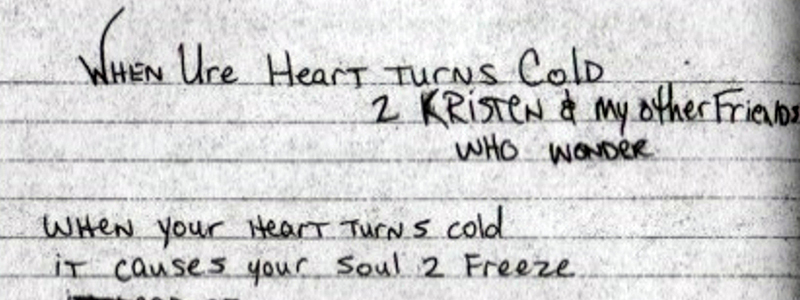 WHEN Ure HearT TURNS ColD
2 KRiSTEN & my other Friends
WHO WONDER
WHEN your HearT TURNS cold
iT causes your Soul 2 Freeze